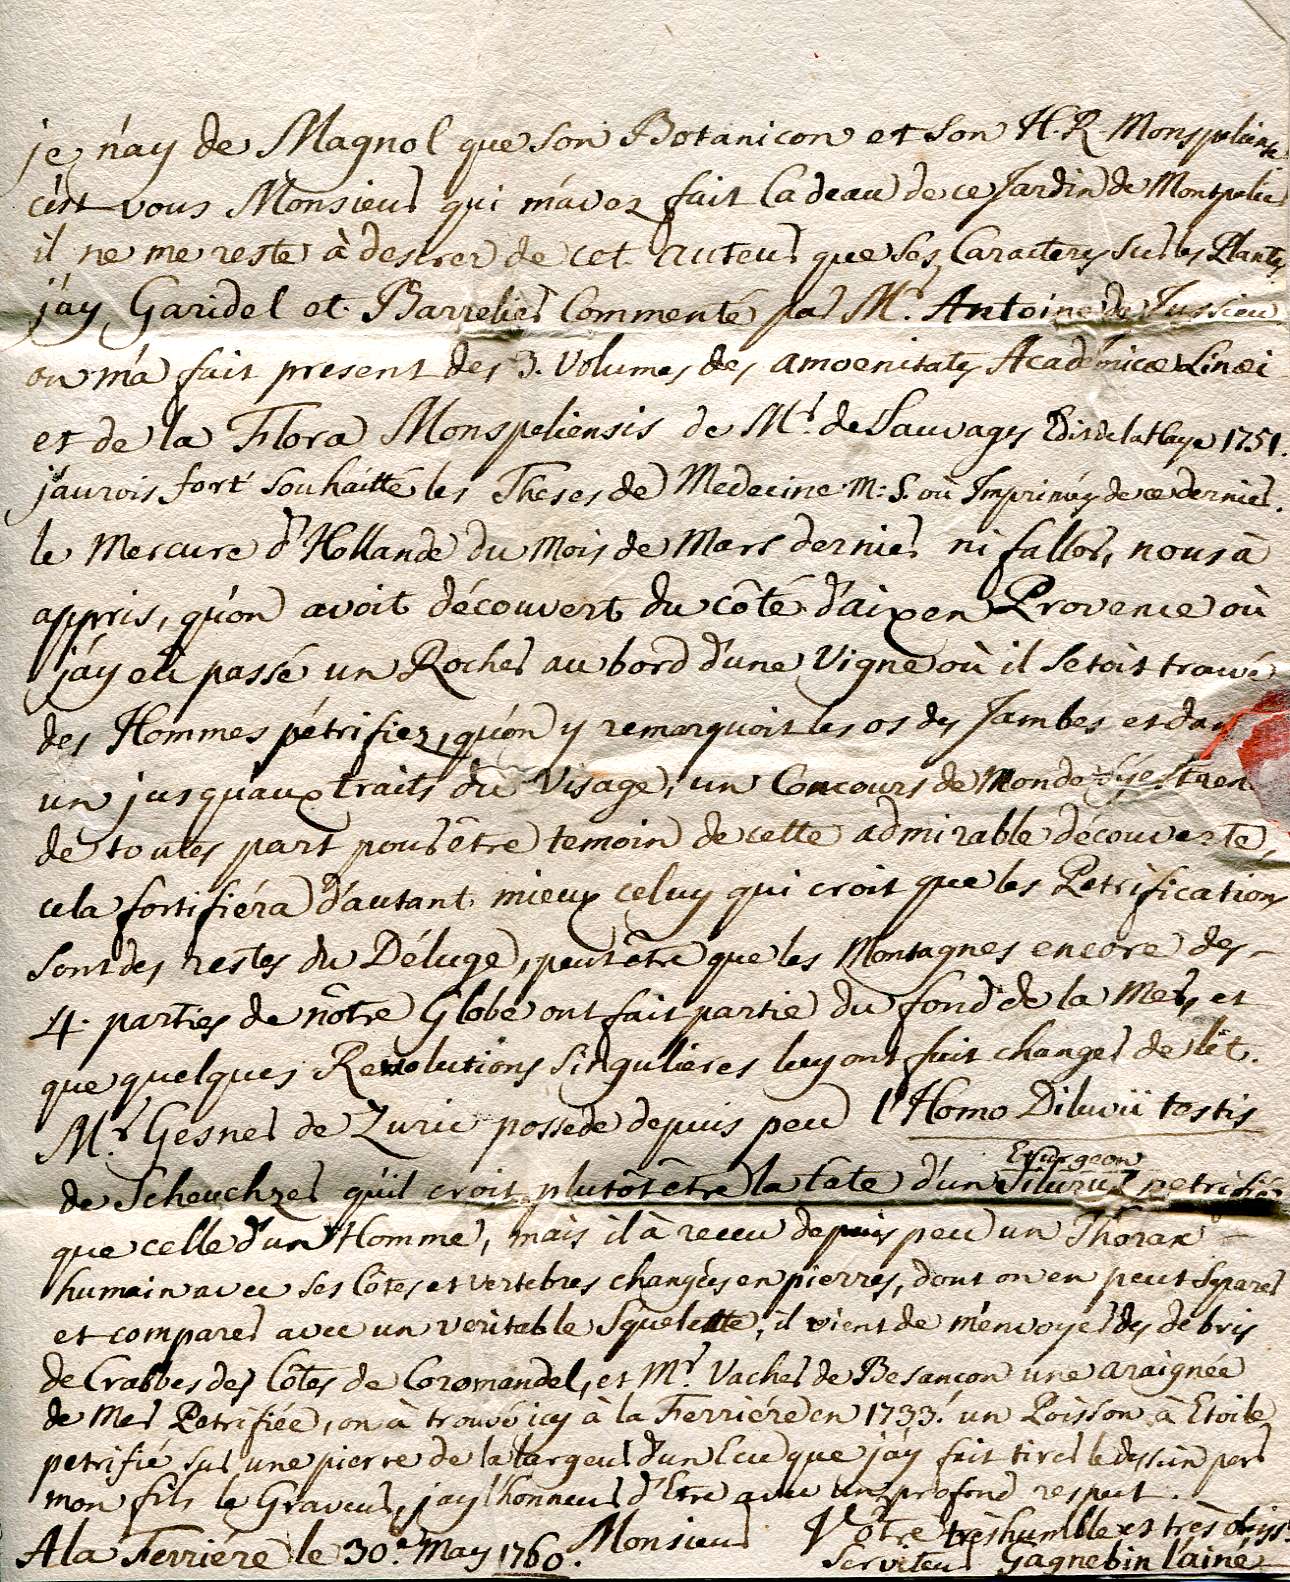 je n'ay de Magnol que son Botanicon et son H. R. Monspeliense
c'est vous Monsieur qui m'avez fait Cadeau de ce Jardin de Montpelier
il ne me reste à desirer de cet auteur que ses Caracteres sur les Plantes
j'ay Garidel et Barrelier Commenté par Mr. Antoine de Jussieu
on m'a fait present des 3. Volumes des amoenitates Académicæ Linæi
et de la Flora Monspeliensis de Mr. de Sauvages Edit de la Haye 1751.
j'aurois fort souhaitté les Theses de Medecine M: S. où Imprimées de ce dernier.
le Mercure d'Hollande du Mois de Mars dernier ni fallor, nous à
appris, qu'on avoit découvert du côté d'aix en Provence où
j'ay eté passé un Rocher au bord d'une Vigne où il setoit trouvé
des Hommes pétrifiez, qu'on y remarquoit les os des Jambes et dan
un jusqu'aux traits du Visage, un Concours de Monde
de toutes part pour être temoin de cette admirable découverte,
cela fortifiéra d'autant mieux celuy qui croit que les Petrifications
sont des restes du Déluge, peut être que les Montagnes encore des
4. parties de nôtre Globe ont fait partie du fond de la Mer, et
que quelques Revolutions singulieres luy ont fait changer de lit.
Mr. Gesner de Zuric possede depuis peu l'Homo Diluvii testis
de Scheuchzer qu'il croit plutôt être la tête d'un Silurus petrifié
Esturgeon
que celle d'un Homme, mais il à receu depuis peu un Thorax
humain avec ses Côtes et vertebres changées en pierres, dont on en peut separer
et comparer avec un veritable Squelette, il vient de m'envoyer des debris
de Crabbes des Côtes de Coromandel, et Mr. Vacher de Besançon une araignée
de Mer Petrifiée, on à trouvé icy à la Ferriére en 1733. un Poisson à Etoile
petrifié sur une pierre de la largeur d'un Ecu que j'ay fait tirer le dessin par
mon fils le Graveur, j'ay l'honneur d'Etre avec un profond respect.
Monsieur Vôtre très humble et très obeiss.t
A la Ferriére le 30.e May 1760. Serviteur Gagnebin l'ainé